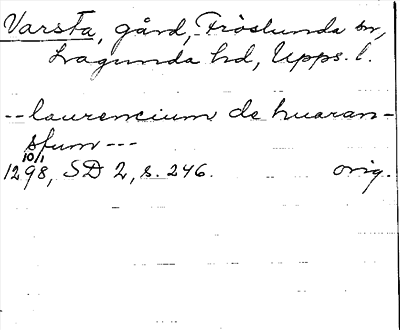 Varsta, gård, Fröslunda sn,
Lagunda hd, Upps. l.
-- laurencium de huaran-
sfum ---
10/1
1298, SD 2, s. 246. orig.